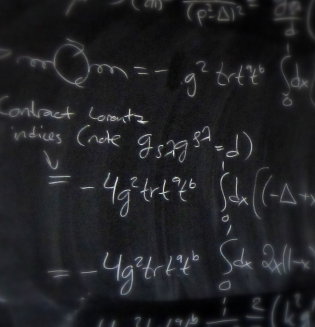 (p²-Δ)²
= - g² tr tᵃtᵇ ∫₀¹ dx
Contract Lorentz
indices (note g_{sλ}g^{sλ} = d)
= - 4g² tr tᵃtᵇ ∫₀¹ dx ((-Δ +
= - 4g² tr tᵃtᵇ ∫₀¹ dx 2x(1-x